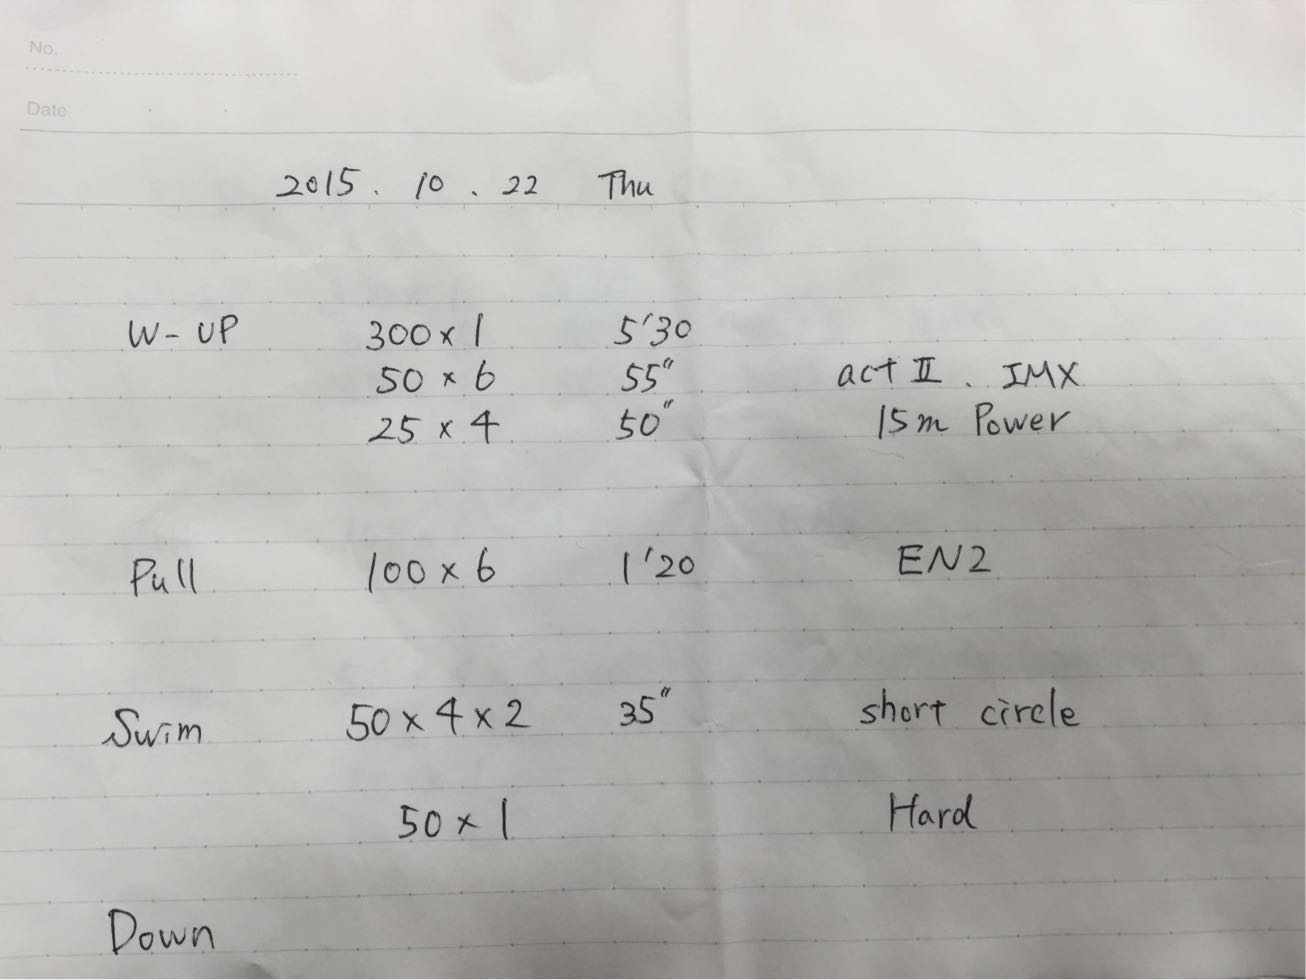 No.
Date
2015. 10. 22 Thu
W-UP 300 x 1 5'30
50 x 6 55" act II. IMX
25 x 4 50" 15m Power
Pull 100 x 6 1'20 EN2
Swim 50 x 4 x 2 35" short circle
50 x 1 Hard
Down